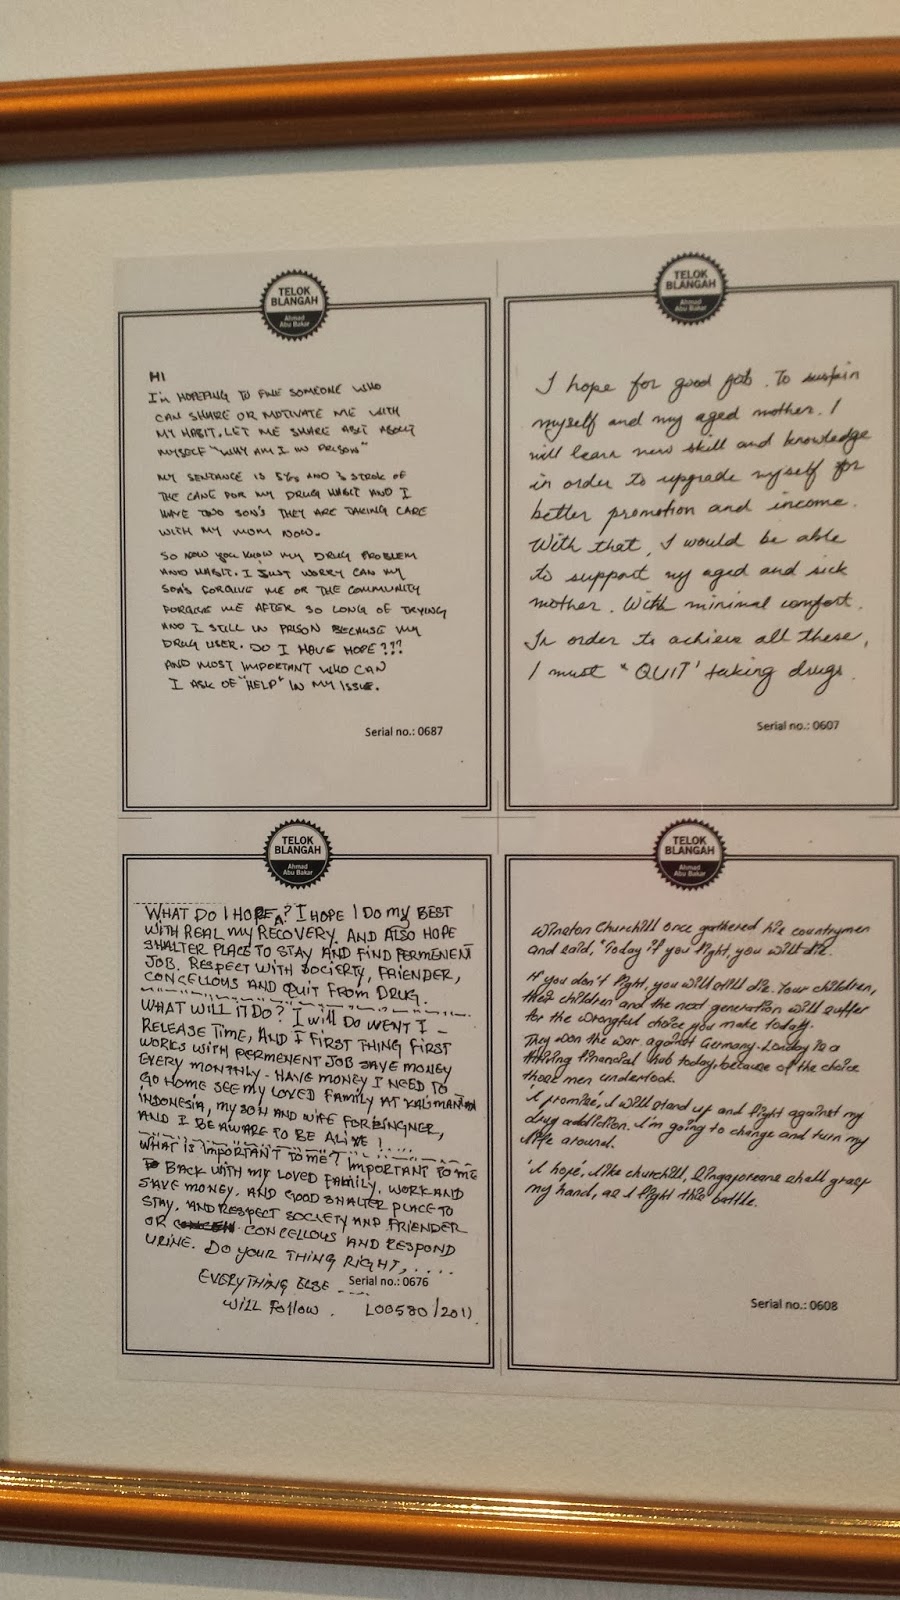 TELOK
BLANGAH
Ahmad
Abu Bakar
HI
I'm HOPEFING TO FINE SOMEONE WHO
CAN SHARE OR MOTIVATE ME WITH
MY HABIT. LET ME SHARE ABIT ABOUT
MYSELF "WHY AM I IN PRISON"
MY SENTANCE IS 5 YRS AND 3 STROK OF
THE CANE FOR MY DRUG HABIT AND I
HAVE TWO SON'S THEY ARE TAKING CARE
WITH MY MOM NOW.
SO NOW YOU KNOW MY DRUG PROBLEM
AND HABIT. I JUST WORRY CAN MY
SON'S FORGIVE ME OR THE COMMUNITY
FORGIVE ME AFTER SO LONG OF TRYING
AND I STILL IN PRISON BECAUSE MY
DRUG USER. DO I HAVE HOPE???
AND MOST IMPORTANT WHO CAN
I ASK OF "HELP" IN MY ISSUE.
Serial no.: 0687
TELOK
BLANGAH
Ahmad
Abu Bakar
I hope for good job. To sustain
myself and my aged mother. I
will learn new skill and knowledge
in order to upgrade myself for
better promotion and income.
With that, I would be able
to support my aged and sick
mother. With minimal comfort.
In order to achieve all these,
I must "QUIT' taking drugs.
Serial no.: 0607
TELOK
BLANGAH
Ahmad
Abu Bakar
WHAT DO I HOPE? I HOPE I DO my BEST
WITH REAL my RECOVERY. AND ALSO HOPE
SHALTER PLACE TO STAY AND FIND PERMENENT
JOB. RESPECT WITH SOCIERTY, FRIENDER,
CONCELLOUS AND QUIT FROM DRUG.
WHAT WILL IT DO? I will DO WENT I -
RELEASE TIME, AND I FIRST THING FIRST
WORKS WITH PERMENENT JOB SAVE MONEY
EVERY MONTHLY - HAVE MONEY I NEED TO
GO HOME SEE MY LOVED FAMILY AT KALIMANTAN
INDONESIA, MY SON AND WIFE FOREINGNER,
AND I BE AWARE TO BE ALIVE!
WHAT IS IMPORTANT TO ME? IMPORTANT TO ME
BACK WITH MY LOVED FAMILY, WORK AND
SAVE MONEY. AND GOOD SHALTER PLACE TO
STAY. AND RESPECT SOCIETY AND FRIENDER
OR CONCELLOUS AND RESPOND
URINE. DO YOUR THING RIGHT, ....
EVERYTHING ELSE ....
Serial no.: 0676
WILL FOLLOW. L00580/2011
TELOK
BLANGAH
Ahmad
Abu Bakar
Winston Churchill once gathered his countrymen
and said, 'Today if you fight, you will die.
If you don't fight, you will still die. Your children,
their children and the next generation will suffer
for the wrongful choice you make today.
They won the war against Germany. London is a
thriving financial hub today, because of the choice
those men undertook.
'I promise', I will stand up and fight against my
drug addiction. I'm going to change and turn my
life around.
'I hope', like churchill, Singaporeans shall grasp
my hand, as I fight this battle.
Serial no.: 0608